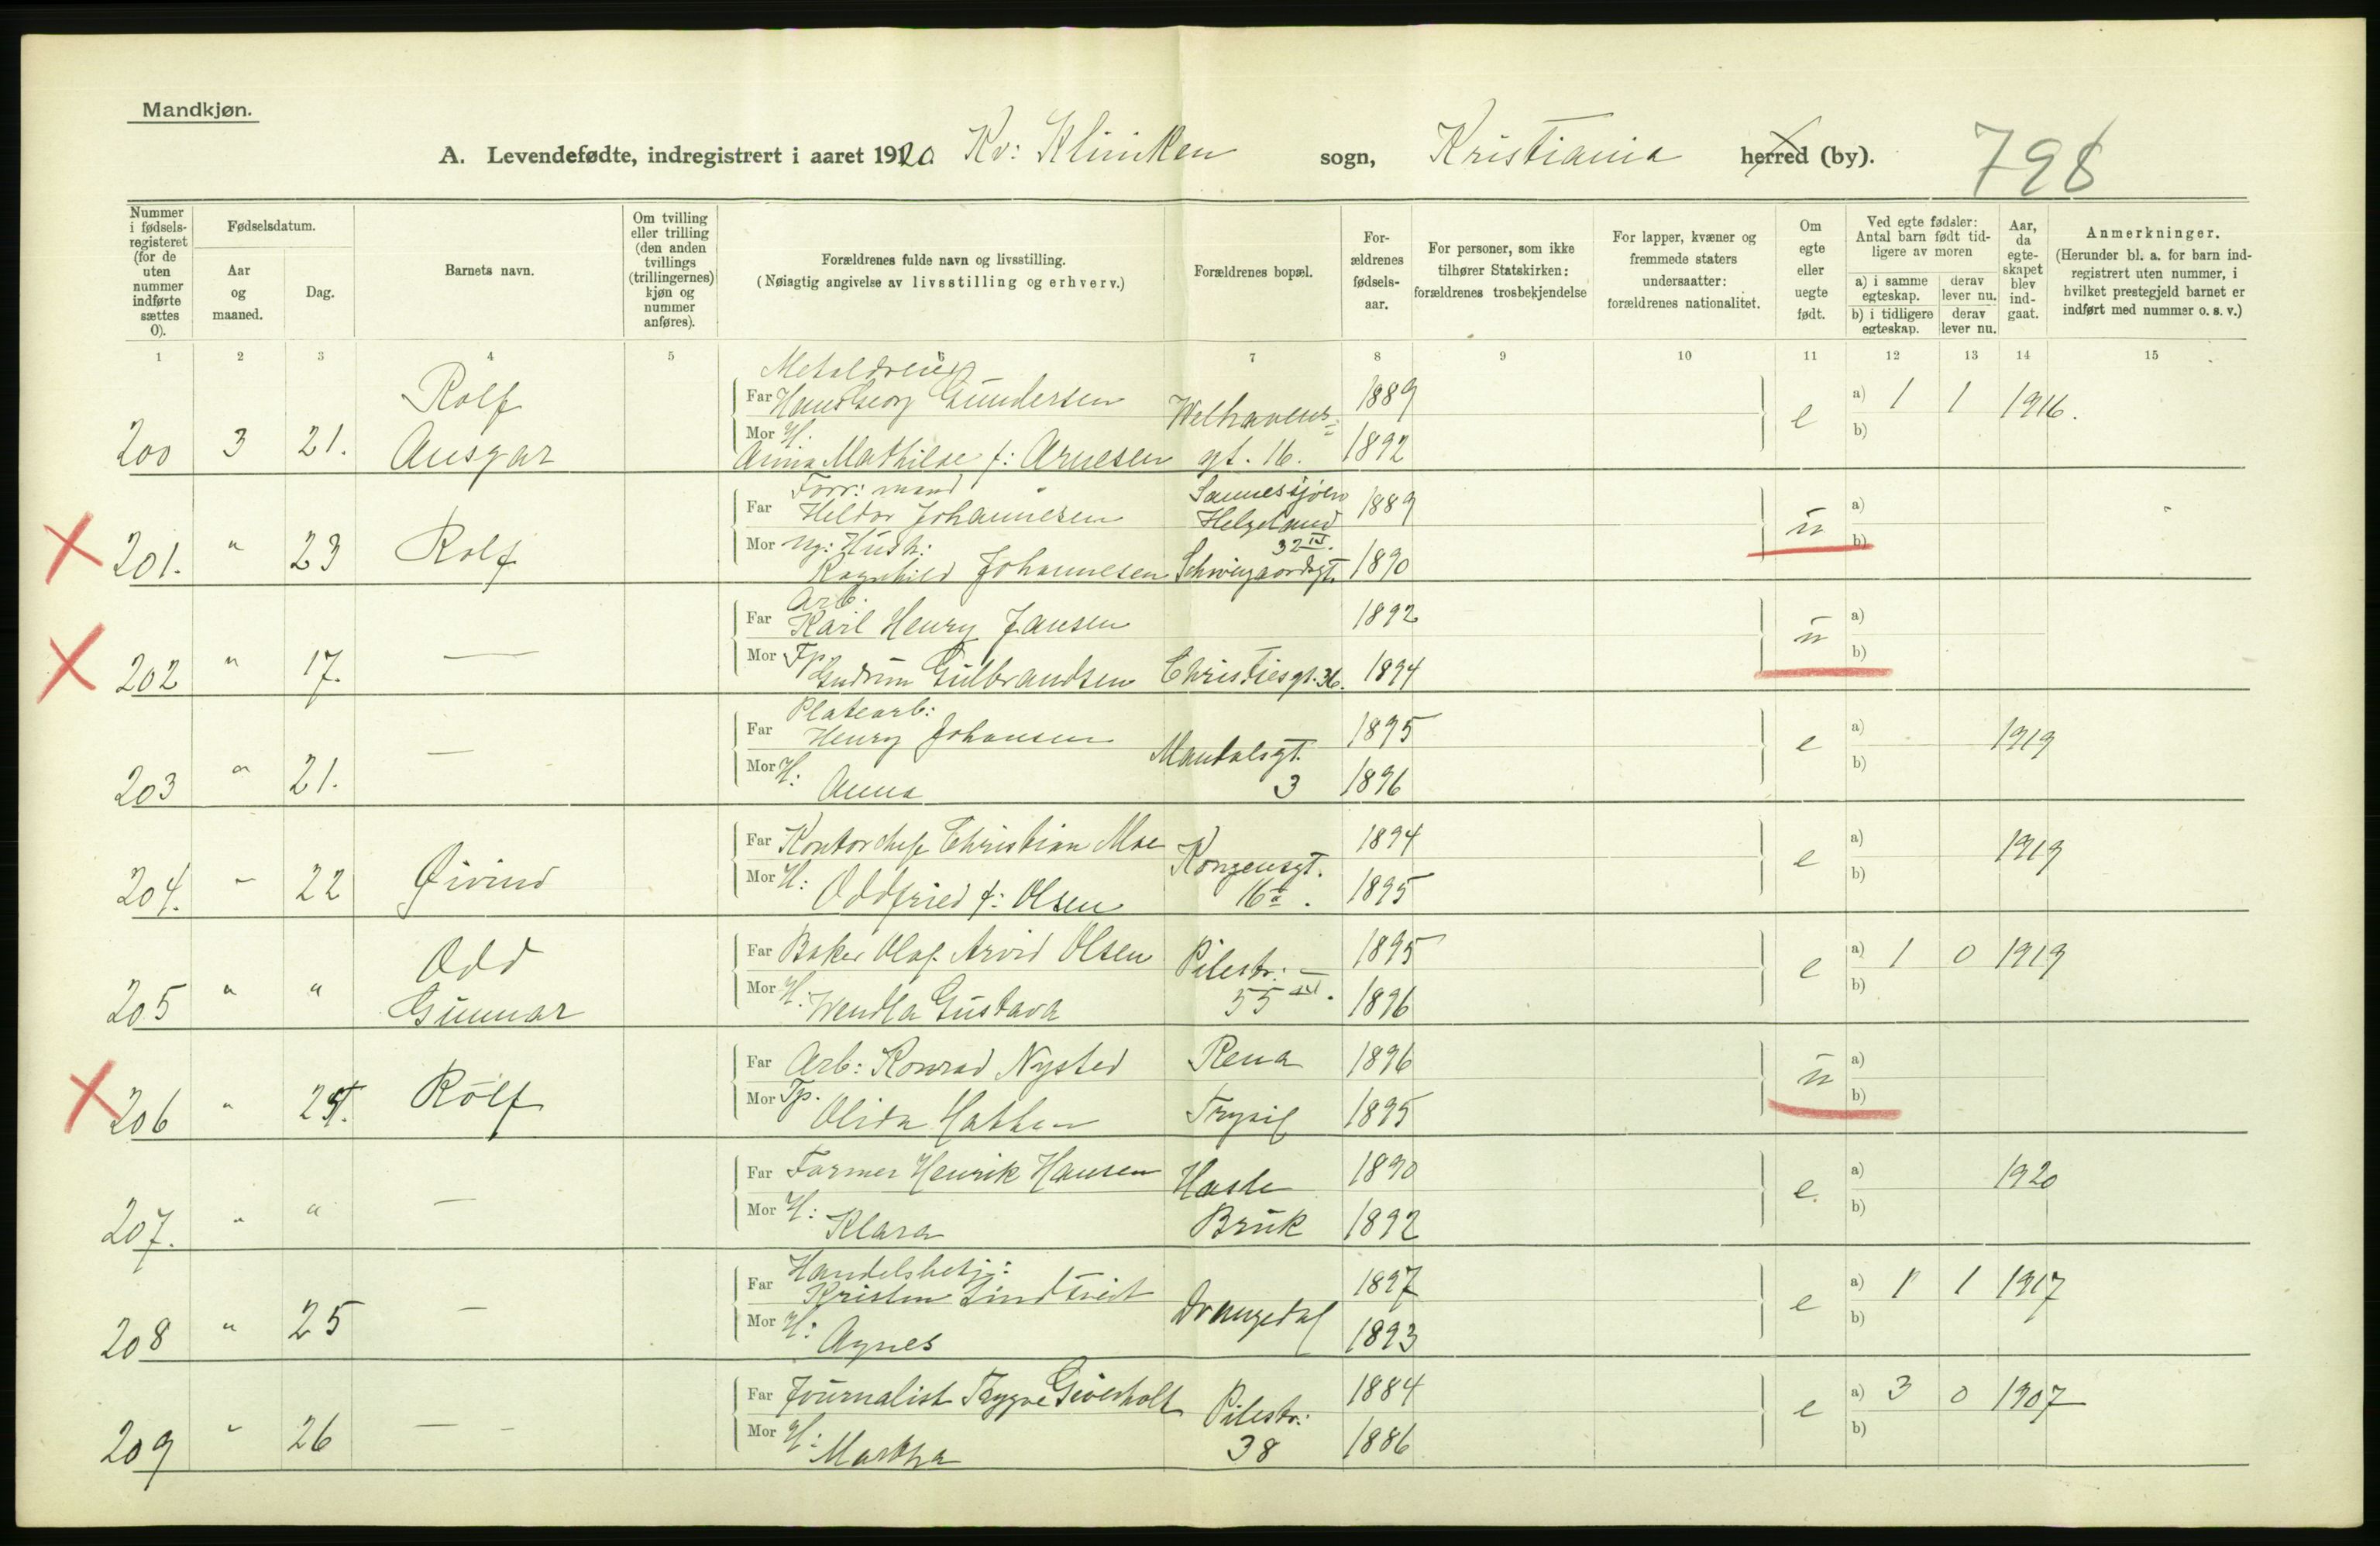 Mandkjøn.
A. Levendefødte, indregistrert i aaret 1920. Kv: Kliniken sogn, Kristiania herred (by). 798
Nummer i fødselsregisteret (for de uten nummer indførte sættes 0).
Fødselsdatum.
Aar og maaned.
Dag.
Barnets navn.
Om tvilling eller trilling (den anden tvillings (trillingernes) kjøn og nummer anføres).
Forældrenes fulde navn og livsstilling.
(Nøiagtig angivelse av livsstilling og erhverv.)
Forældrenes bopæl.
Forældrenes fødselsaar.
For personer, som ikke tilhører Statskirken: forældrenes trosbekjendelse
For lapper, kvæner og fremmede staters undersaatter: forældrenes nationalitet.
Om egte eller uegte født.
Ved egte fødsler: Antal barn født tidligere av moren
a) i samme egteskap.
derav lever nu.
b) i tidligere egteskap.
derav lever nu.
Aar, da egteskapet blev indgaat.
Anmerkninger.
(Herunder bl. a. for barn indregistrert uten nummer, i hvilket prestegjeld barnet er indført med nummer o. s. v.)
1 2 3 4 5 6 7 8 9 10 11 12 13 14 15
200 3 21. Rolf Ansgar
Far Hans Georg Gundersen Welhavens= 1889 e a) 1 1 1916.
Mor H: Anna Mathilde f: Arnesen gt. 16. 1892 b)
201. " 23 Rolf
Far Forr: mand Heldor Johannesen Sannessjøen Helgeland 1889 u a)
Mor Ug: Hush: Ragnhild Johannesen 32 IV. Schweigaardsgt. 1890 b)
202 " 17. —
Far Arb. Karl Henry Jansen 1892 u a)
Mor Tp Gudrun Gulbrandsen Christiesgt. 36. 1894 b)
203 " 21. —
Far Platearb: Henry Johansen Mandalsgt. 1895 e a) 1919
Mor H: Anna 3 1896 b)
204. " 22 Øivind
Far Kontorchef Christian Moe Kongensgt. 1894 e a) 1919
Mor H: Oddfried f: Olsen 16 1895 b)
205 " " Odd Gunnar
Far Baker Olaf Arvid Olsen Pilestr: 1895 e a) 1 0 1919
Mor H: Wendla Gustava 55 1896 b)
206 " Rolf
Far Arb: Konrad Nysted Rena 1896 u a)
Mor Tp. Olida Trysil 1895 b)
207. " " —
Far Farmer Henrik Hansen Hasle 1890 e. a) 1920
Mor H: Klara Bruk 1892 b)
208 " 25 —
Far Handelsbetj: Kristen Lindtveit Drangedal 1897 e a) 1 1 1917
Mor H: Agnes 1893 b)
209 " 26 —
Far Journalist Trygve Giverholt Pilestr: 1884 e a) 3 0 1907
Mor H: Martha 38 1886 b)